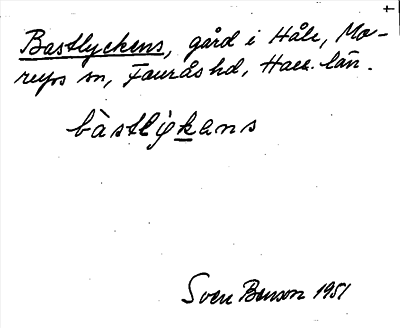 Bastlyckens, gård i Håle, Mo-
rups sn, Faurås hd, Hall. län.
bàstlykans
Sven Benson 1951